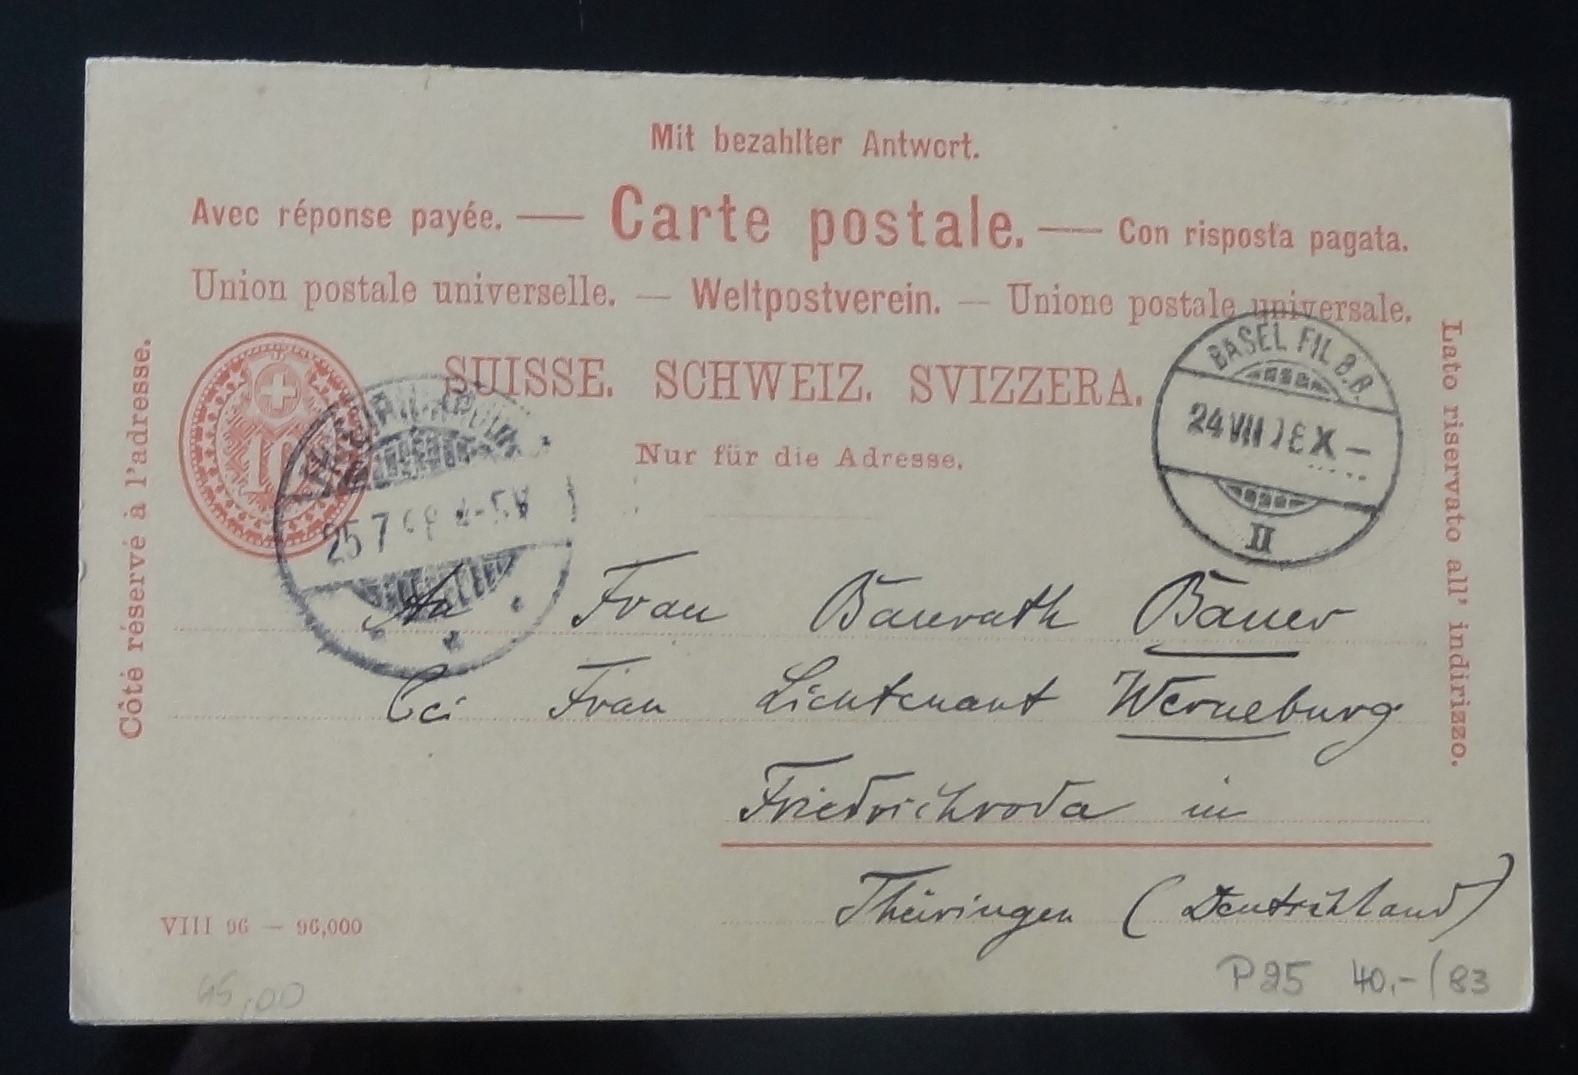 Mit bezahlter Antwort.
Avec réponse payée. — Carte postale. — Con risposta pagata.
Union postale universelle. — Weltpostverein. — Unione postale universale.
SUISSE. SCHWEIZ. SVIZZERA.
Nur für die Adresse.
Côté réservé à l'adresse.
Lato riservato all' indirizzo.
10
BASEL FIL. B.B.
24 VII
X –
II
25 7
An Frau Baurath Bauer
bei Frau Lieutenant Werneburg
Friedrichroda in
Thüringen (Deutschland)
VIII 96 — 96,000
45,00
P25 40,-/83